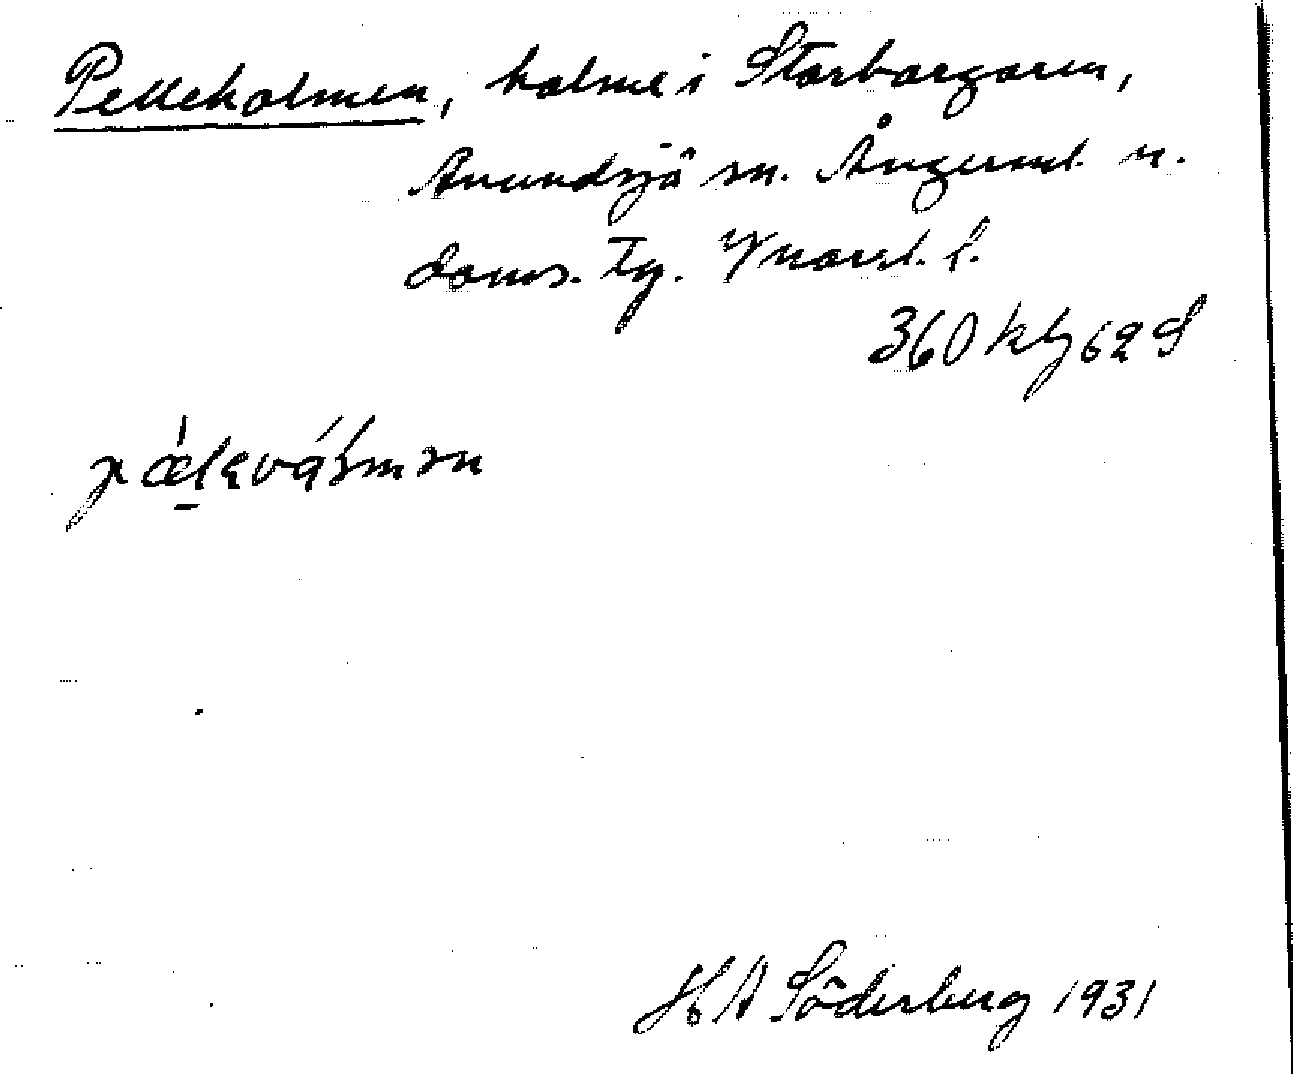 Pelleholmen, holme i Storborgaren,
Anundsjö sn. Ångerml. n.
doms. Tg. Vnorrl. l.
360 kbg 62 S
H A Söderberg 1931